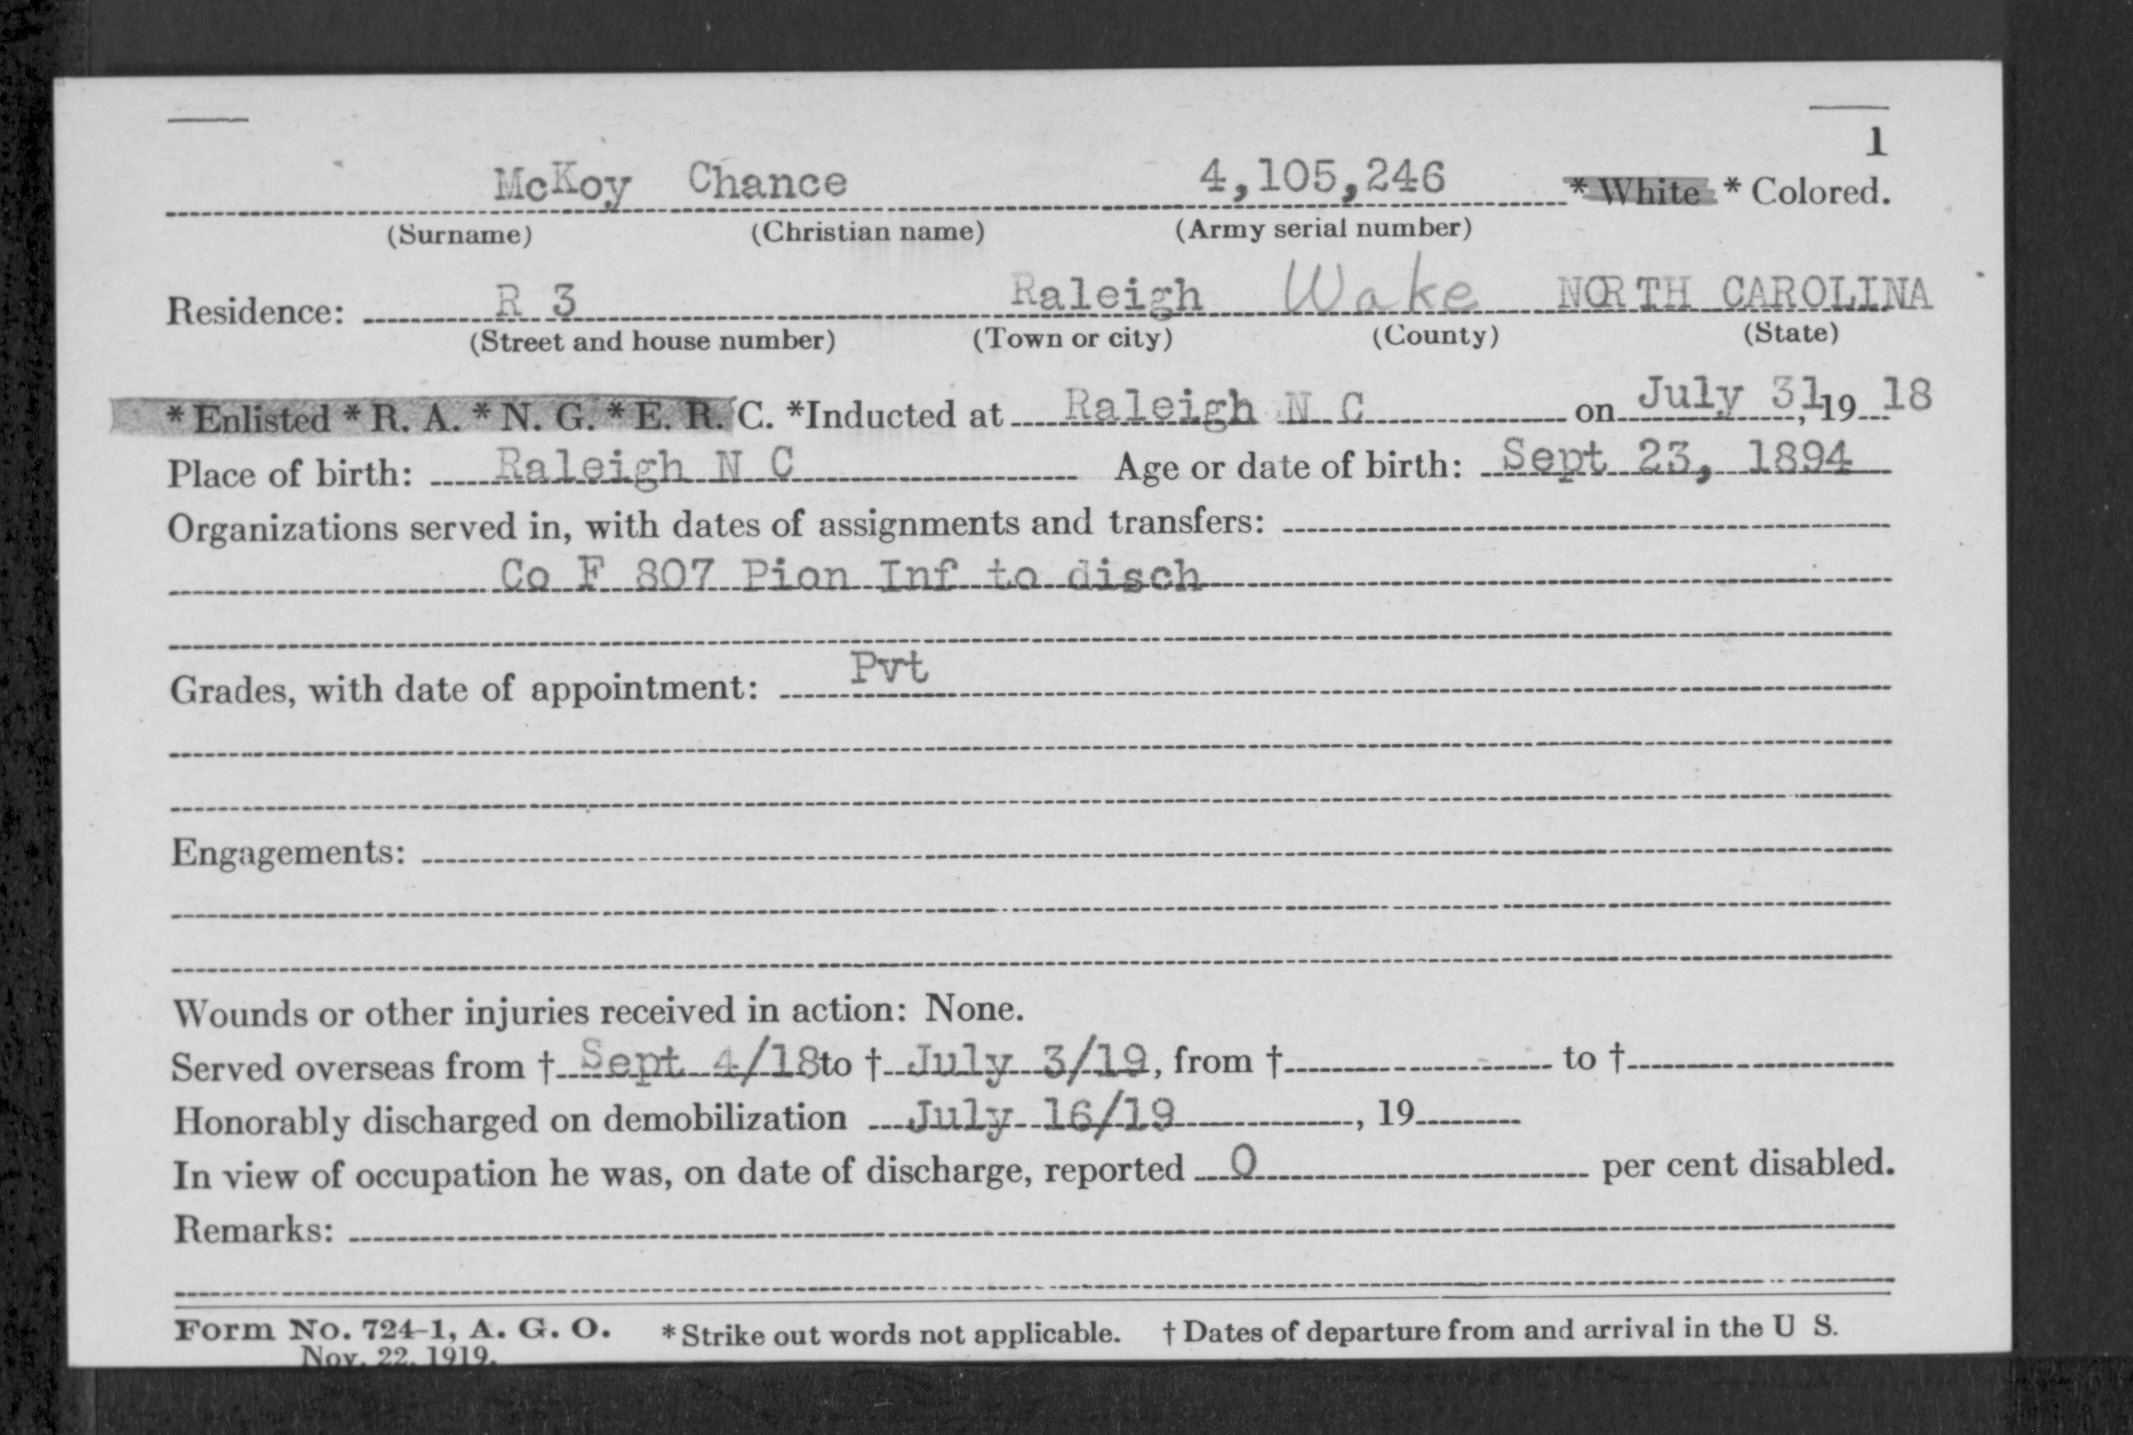 1
McKoy Chance 4,105,246 * White * Colored.
(Surname) (Christian name) (Army serial number)
Residence: R 3 Raleigh Wake NORTH CAROLINA
(Street and house number) (Town or city) (County) (State)
* Enlisted * R. A. * N. G. * E. R. C. *Inducted at Raleigh N C on July 31, 19 18
Place of birth: Raleigh N C Age or date of birth: Sept 23, 1894
Organizations served in, with dates of assignments and transfers:
Co F 807 Pion Inf to disch
Grades, with date of appointment: Pvt
Engagements:
Wounds or other injuries received in action: None.
Served overseas from † Sept 4/18 to † July 3/19, from † to †
Honorably discharged on demobilization July 16/19, 19
In view of occupation he was, on date of discharge, reported 0 per cent disabled.
Remarks:
Form No. 724-1, A. G. O. * Strike out words not applicable. † Dates of departure from and arrival in the U S.
Nov. 22, 1919.